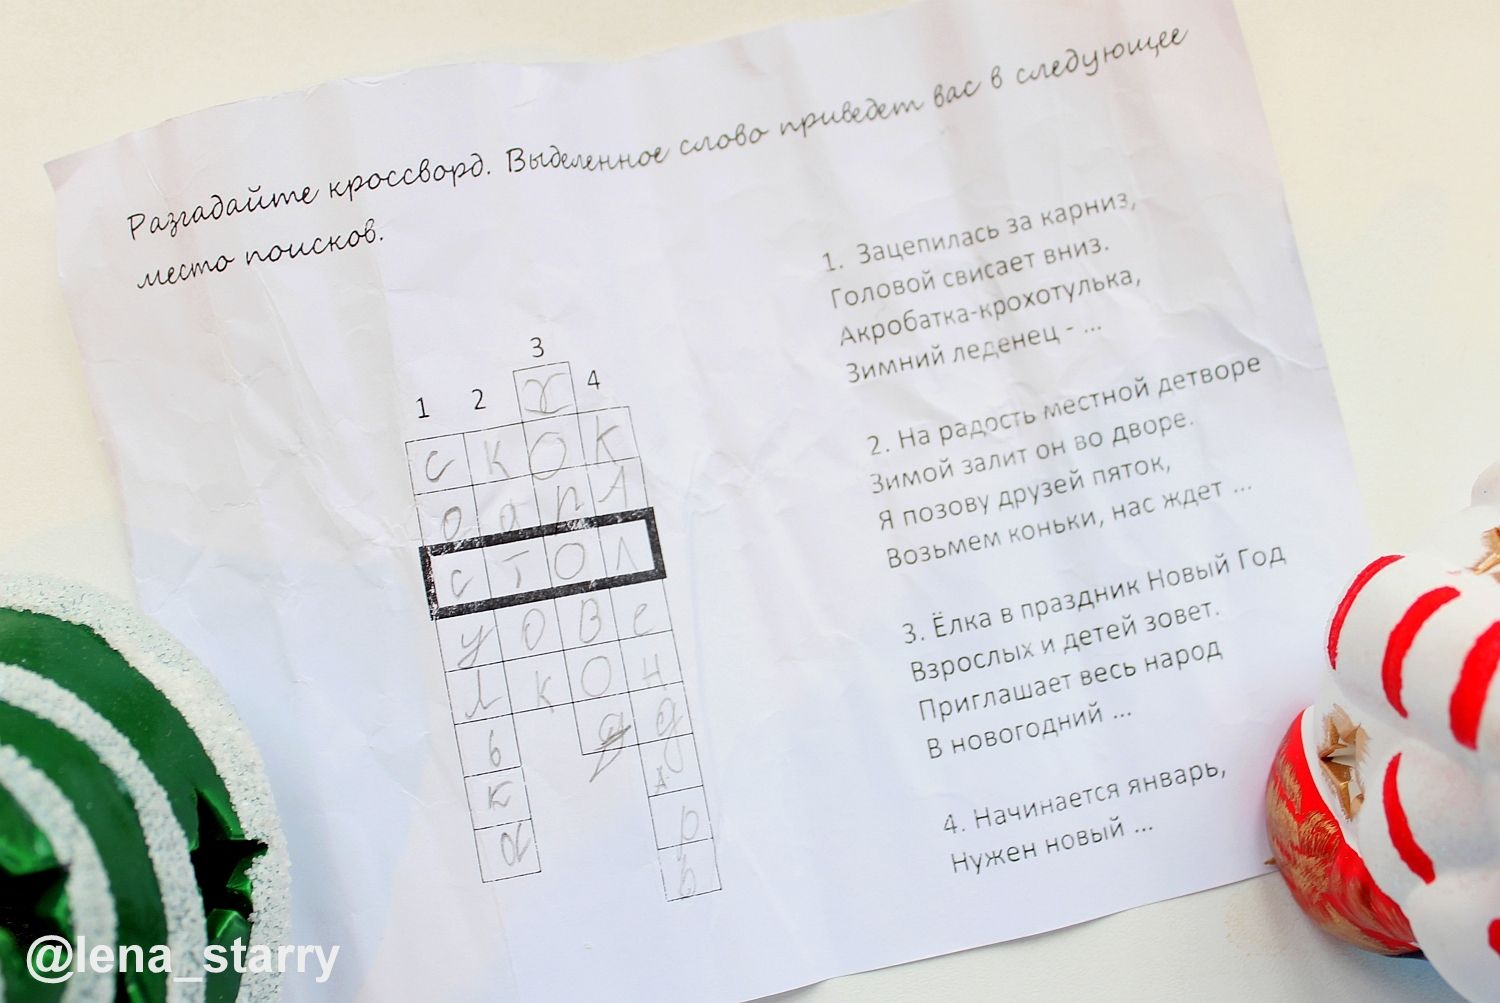 Разгадайте кроссворд. Выделенное слово приведет вас в следующее
место поисков.
3
1 2 4
х
с к о к
о а р А
с т о л
у о в е
л к о н
ь д д
к А
а р
ь
1. Зацепилась за карниз,
Головой свисает вниз.
Акробатка-крохотулька,
Зимний леденец - ...
2. На радость местной детворе
Зимой залит он во дворе.
Я позову друзей пяток,
Возьмем коньки, нас ждет ...
3. Ёлка в праздник Новый Год
Взрослых и детей зовет.
Приглашает весь народ
В новогодний ...
4. Начинается январь,
Нужен новый ...
@lena_starry